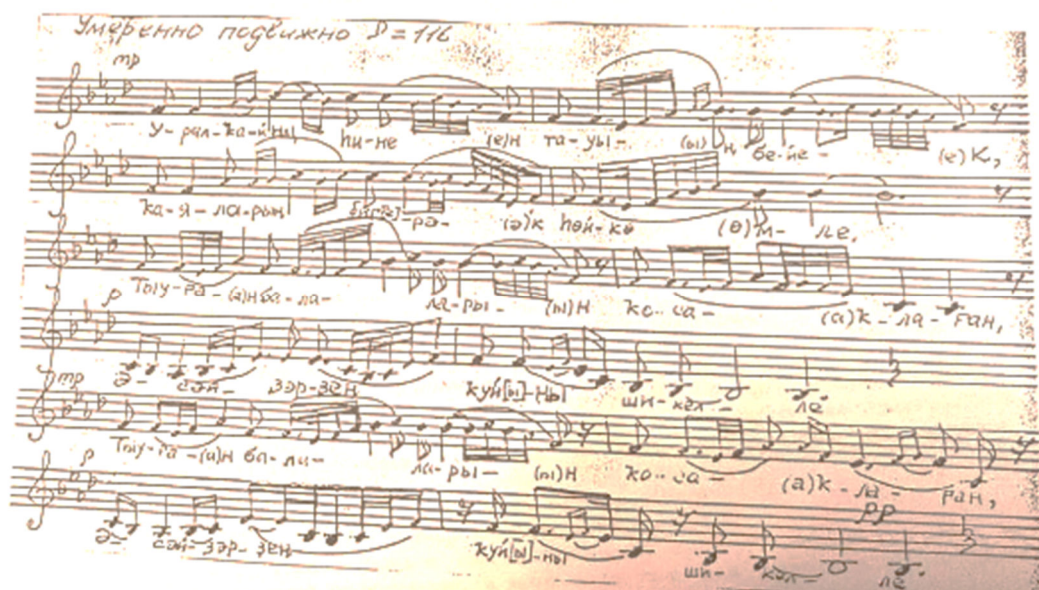 Умеренно подвижно ♪=116
mp
У-рал-ка-йың һи-не (е)н та-уы- (ы)ң бе-йе- (е)к,
ка-я-ла-рың -рә- (ә)к һөй-кө (ө)м-ле.
Тыу-га-(а)н ба-ла- ла-ры- (ы)н ко-са- (а)к-ла-ған,
p
Ә- сәй- зәр-зең күй[ы]-ны ши-кəл- ле.
mp
Тыу-га-(а)н ба-ла- ла-ры- (ы)н ко-са- (а)к-ла- ған,
p pp
Ә- сәй-зәр-зең күй[ы]-ны ши- кəл- ле.